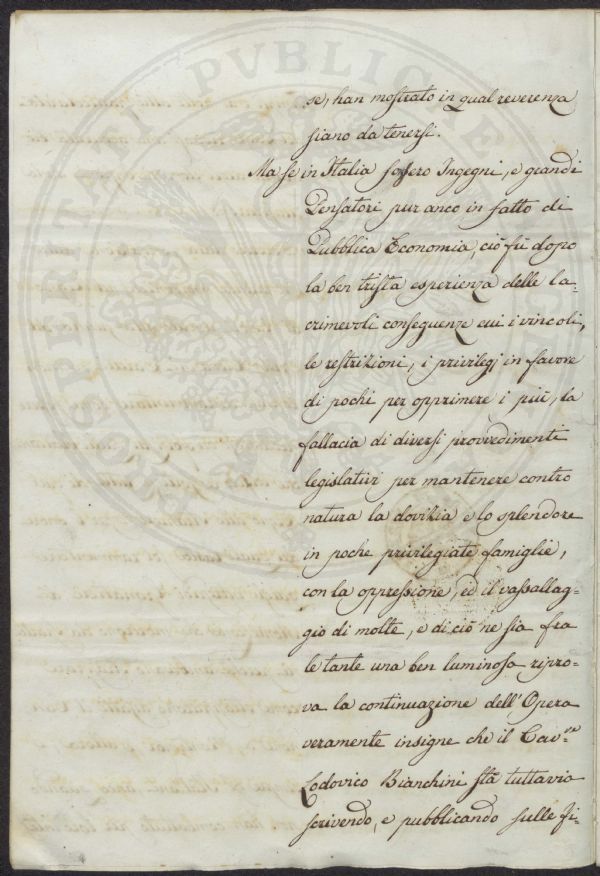 se, han mostrato in qual reverenza
siano da tenersi.
Ma se in Italia sofsero Ingegni, e grandi
Pensatori pur anco in fatto di
Pubblica Economia, ciò fù dopo
la ben trista esperienza delle la-
crimevoli conseguenze cui i vincoli,
le restrizioni, i privilegj in favore
di pochi per opprimere i più, la
fallacia di diversi provvedimenti
legislativi per mantenere contro
natura la dovizia e lo splendore
in poche privilegiate famiglie,
con la oppressione, ed il vassallag-
gio di molte, e di ciò ne sia fra
le tante una ben luminosa ripro-
va la continuazione dell'Opera
veramente insigne che il Cav.re
Lodovico Bianchini stà tuttavia
scrivendo, e pubblicando sulle Fi-
PUBLICAE
PROSPERITATI